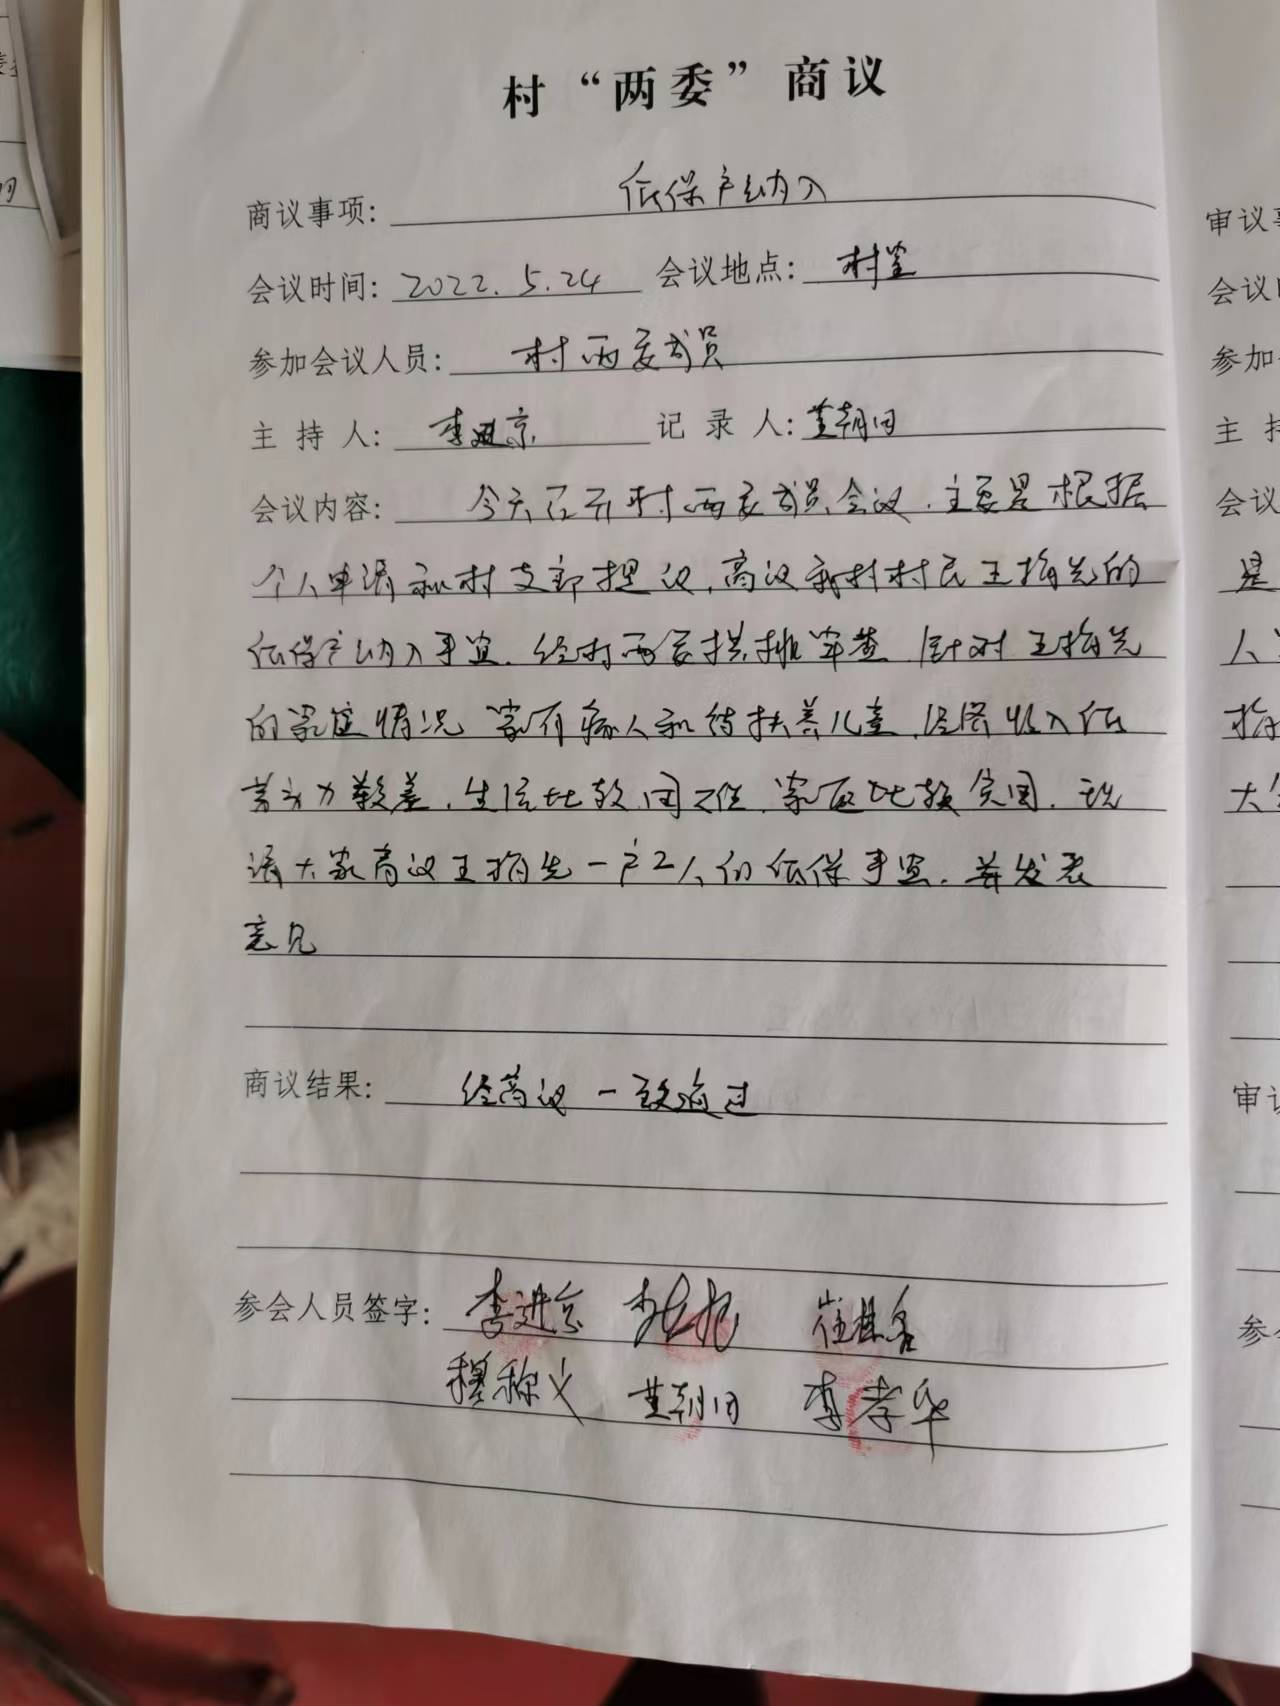 村“两委”商议
商议事项：低保户纳入
会议时间：2022.5.24 会议地点：村室
参加会议人员：村两委成员
主持人：李进京 记录人：黄朝田
会议内容：今天召开村两委成员会议，主要是根据
个人申请和村支部提议，商议我村村民王指先的
低保户纳入事宜，经村两委摸排审查，针对王指先
的家庭情况 家有病人和待扶养儿童，经济收入低
劳动力较差，生活比较困难，家庭比较贫困，现
请大家商议王指先一户2人的低保事宜，并发表
意见
商议结果：经商议一致通过
参会人员签字：李进京
穆称义 黄朝田 李孝华
审议
会议
参加
主持
会议
是
人
指
大
审议
参会